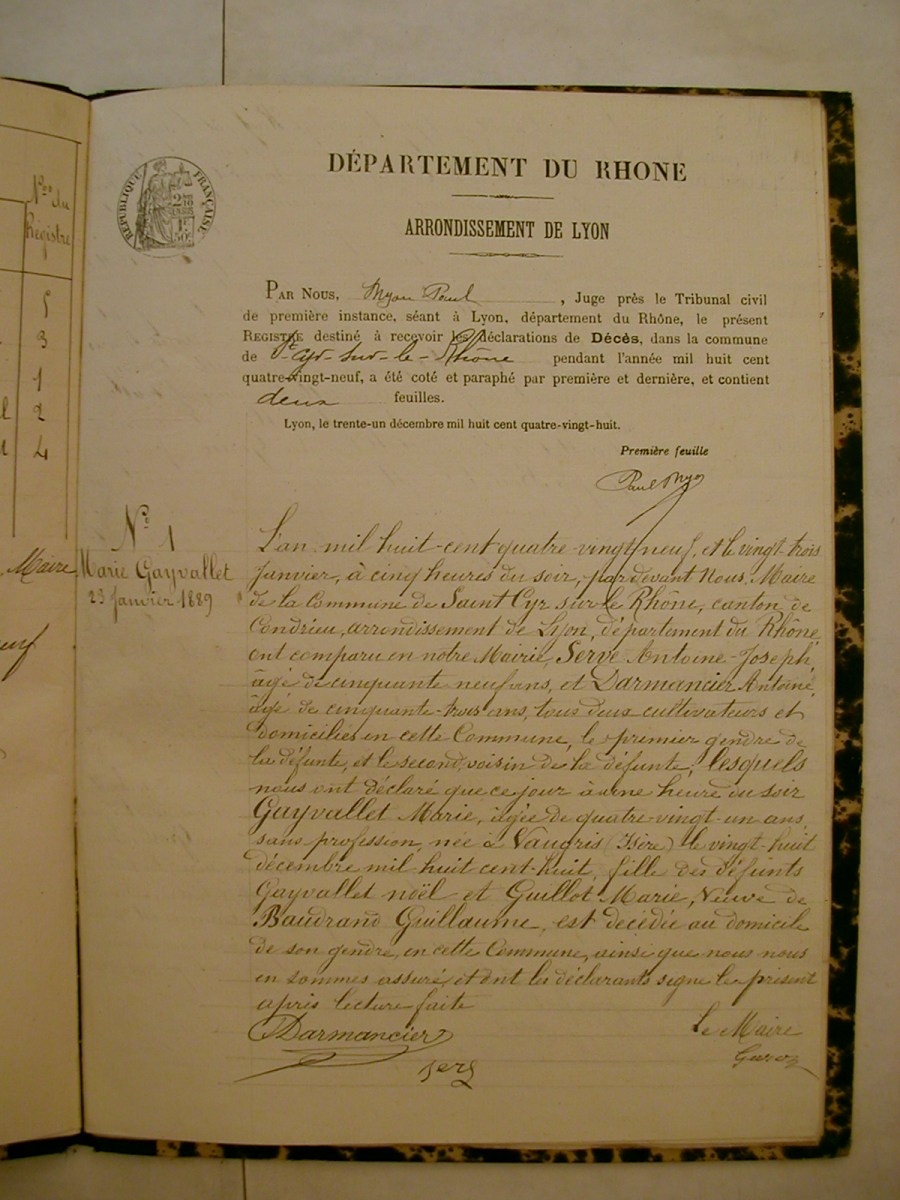 Nos du
Registre
5
3
1
2
4
Maire
RÉPUBLIQUE FRANÇAISE
DÉPARTEMENT DU RHONE
ARRONDISSEMENT DE LYON
PAR NOUS, Myon Paul, Juge près le Tribunal civil
de première instance, séant à Lyon, département du Rhône, le présent
REGISTRE destiné à recevoir les déclarations de Décès, dans la commune
de St-Cyr-sur-le-Rhône pendant l'année mil huit cent
quatre-vingt-neuf, a été coté et paraphé par première et dernière, et contient
deux feuilles.
Lyon, le trente-un décembre mil huit cent quatre-vingt-huit.
Première feuille
Paul Myon
No 1
Marie Gayvallet
23 Janvier 1889
L'an mil huit-cent quatre-vingt neuf, et le vingt-trois
Janvier, à cinq heures du soir, par devant Nous, Maire
de la Commune de Saint Cyr sur le Rhône, canton de
Condrieu, arrondissement de Lyon, département du Rhône,
ont comparu en notre Mairie, Serve Antoine-Joseph,
âgé de cinquante neuf ans, et Darmancier Antoine,
âgé de cinquante-trois ans, tous deux cultivateurs et
domiciliés en cette Commune, le premier gendre de
la défunte, et le second, voisin de la défunte, lesquels
nous ont déclaré que ce jour à une heure du soir
Gayvallet Marie, âgée de quatre-vingt-un ans,
sans profession, née à Vaugris (Isère) le vingt-huit
décembre mil-huit cent-huit, fille des défunts
Gayvallet noël et Guillot Marie, Veuve de
Baudrand Guillaume, est décédée au domicile
de son gendre, en cette Commune, ainsi que nous nous
en sommes assuré, et ont les déclarants signé le présent
après lecture faite
Darmancier
Le Maire